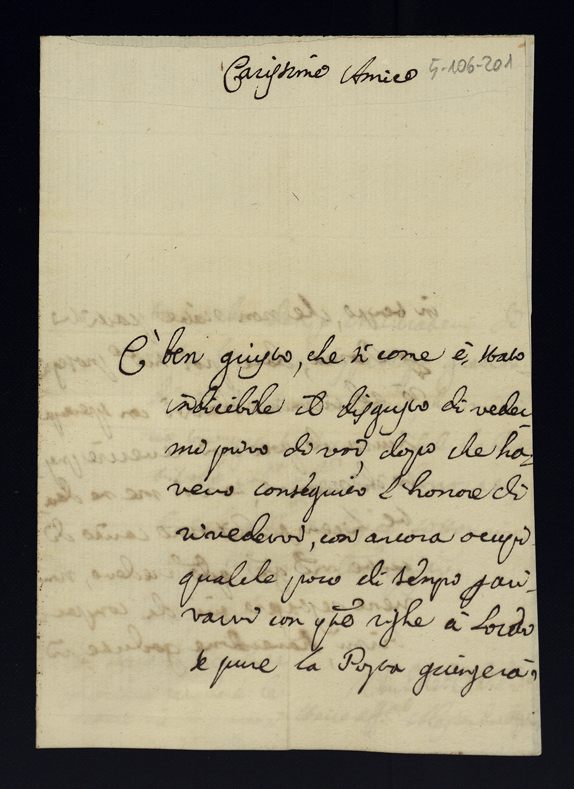 Carissimo Amico 5-106-201
E' ben giusto, che sì come è stato
indicibile il disgusto di veder
mi privo di voi, dopo che ha,
vevo conseguito l'honore di
rivedervi, con ancora ocupi
qualche poco di tempo
varvi con qste righe à
e pure la Posta giungerà,